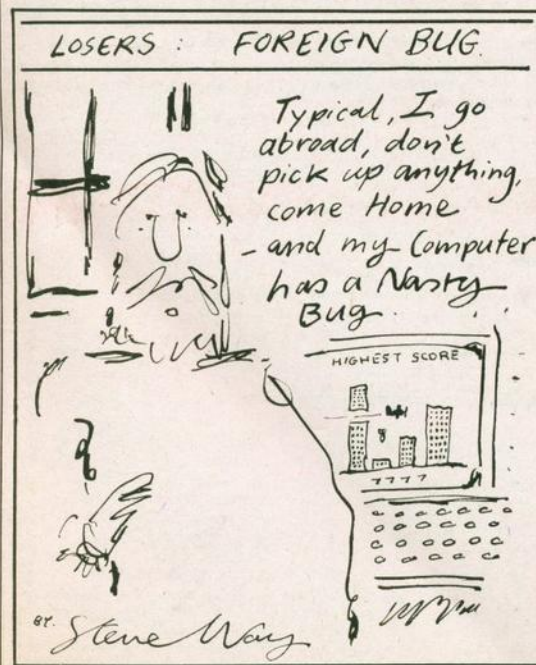 LOSERS : FOREIGN BUG.
Typical, I go
abroad, don't
pick up anything,
come Home
- and my Computer
has a Nasty
Bug.
HIGHEST SCORE
7777
BY. Steve Way